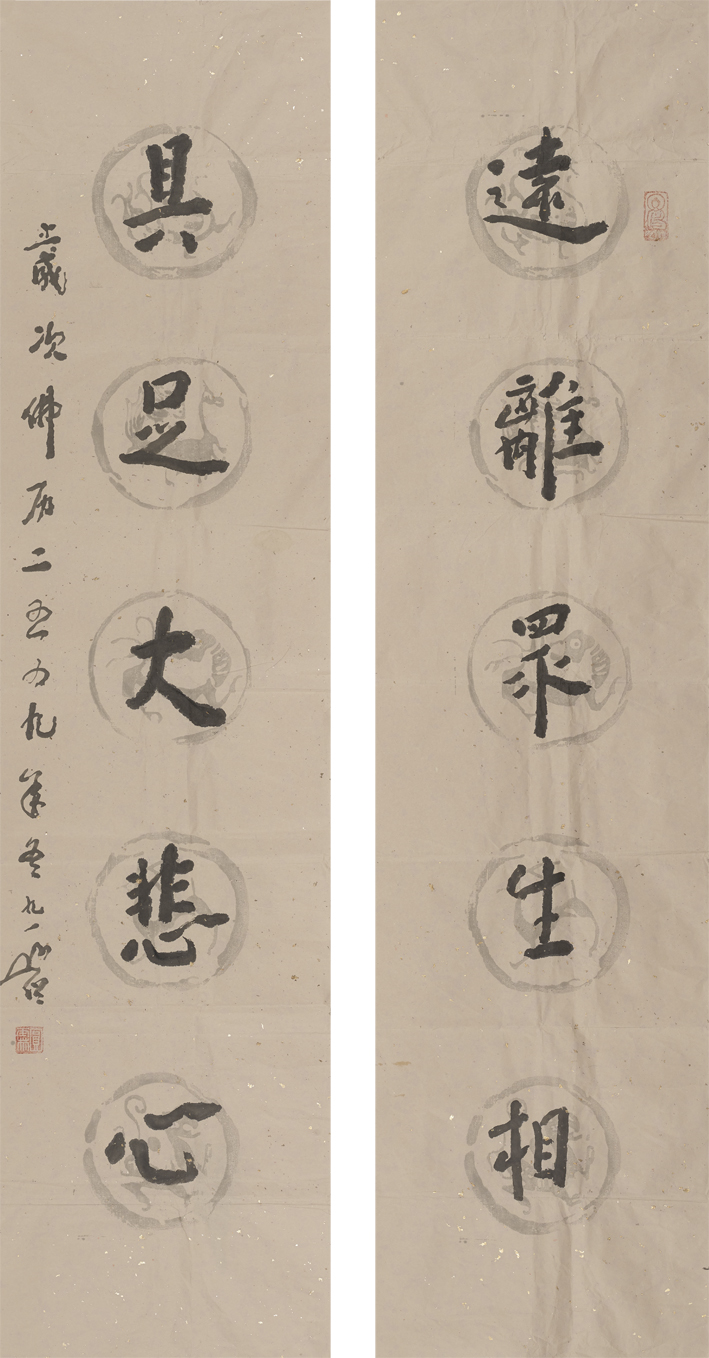 遠離眾生相
具足大悲心
歲次佛历二五五九年